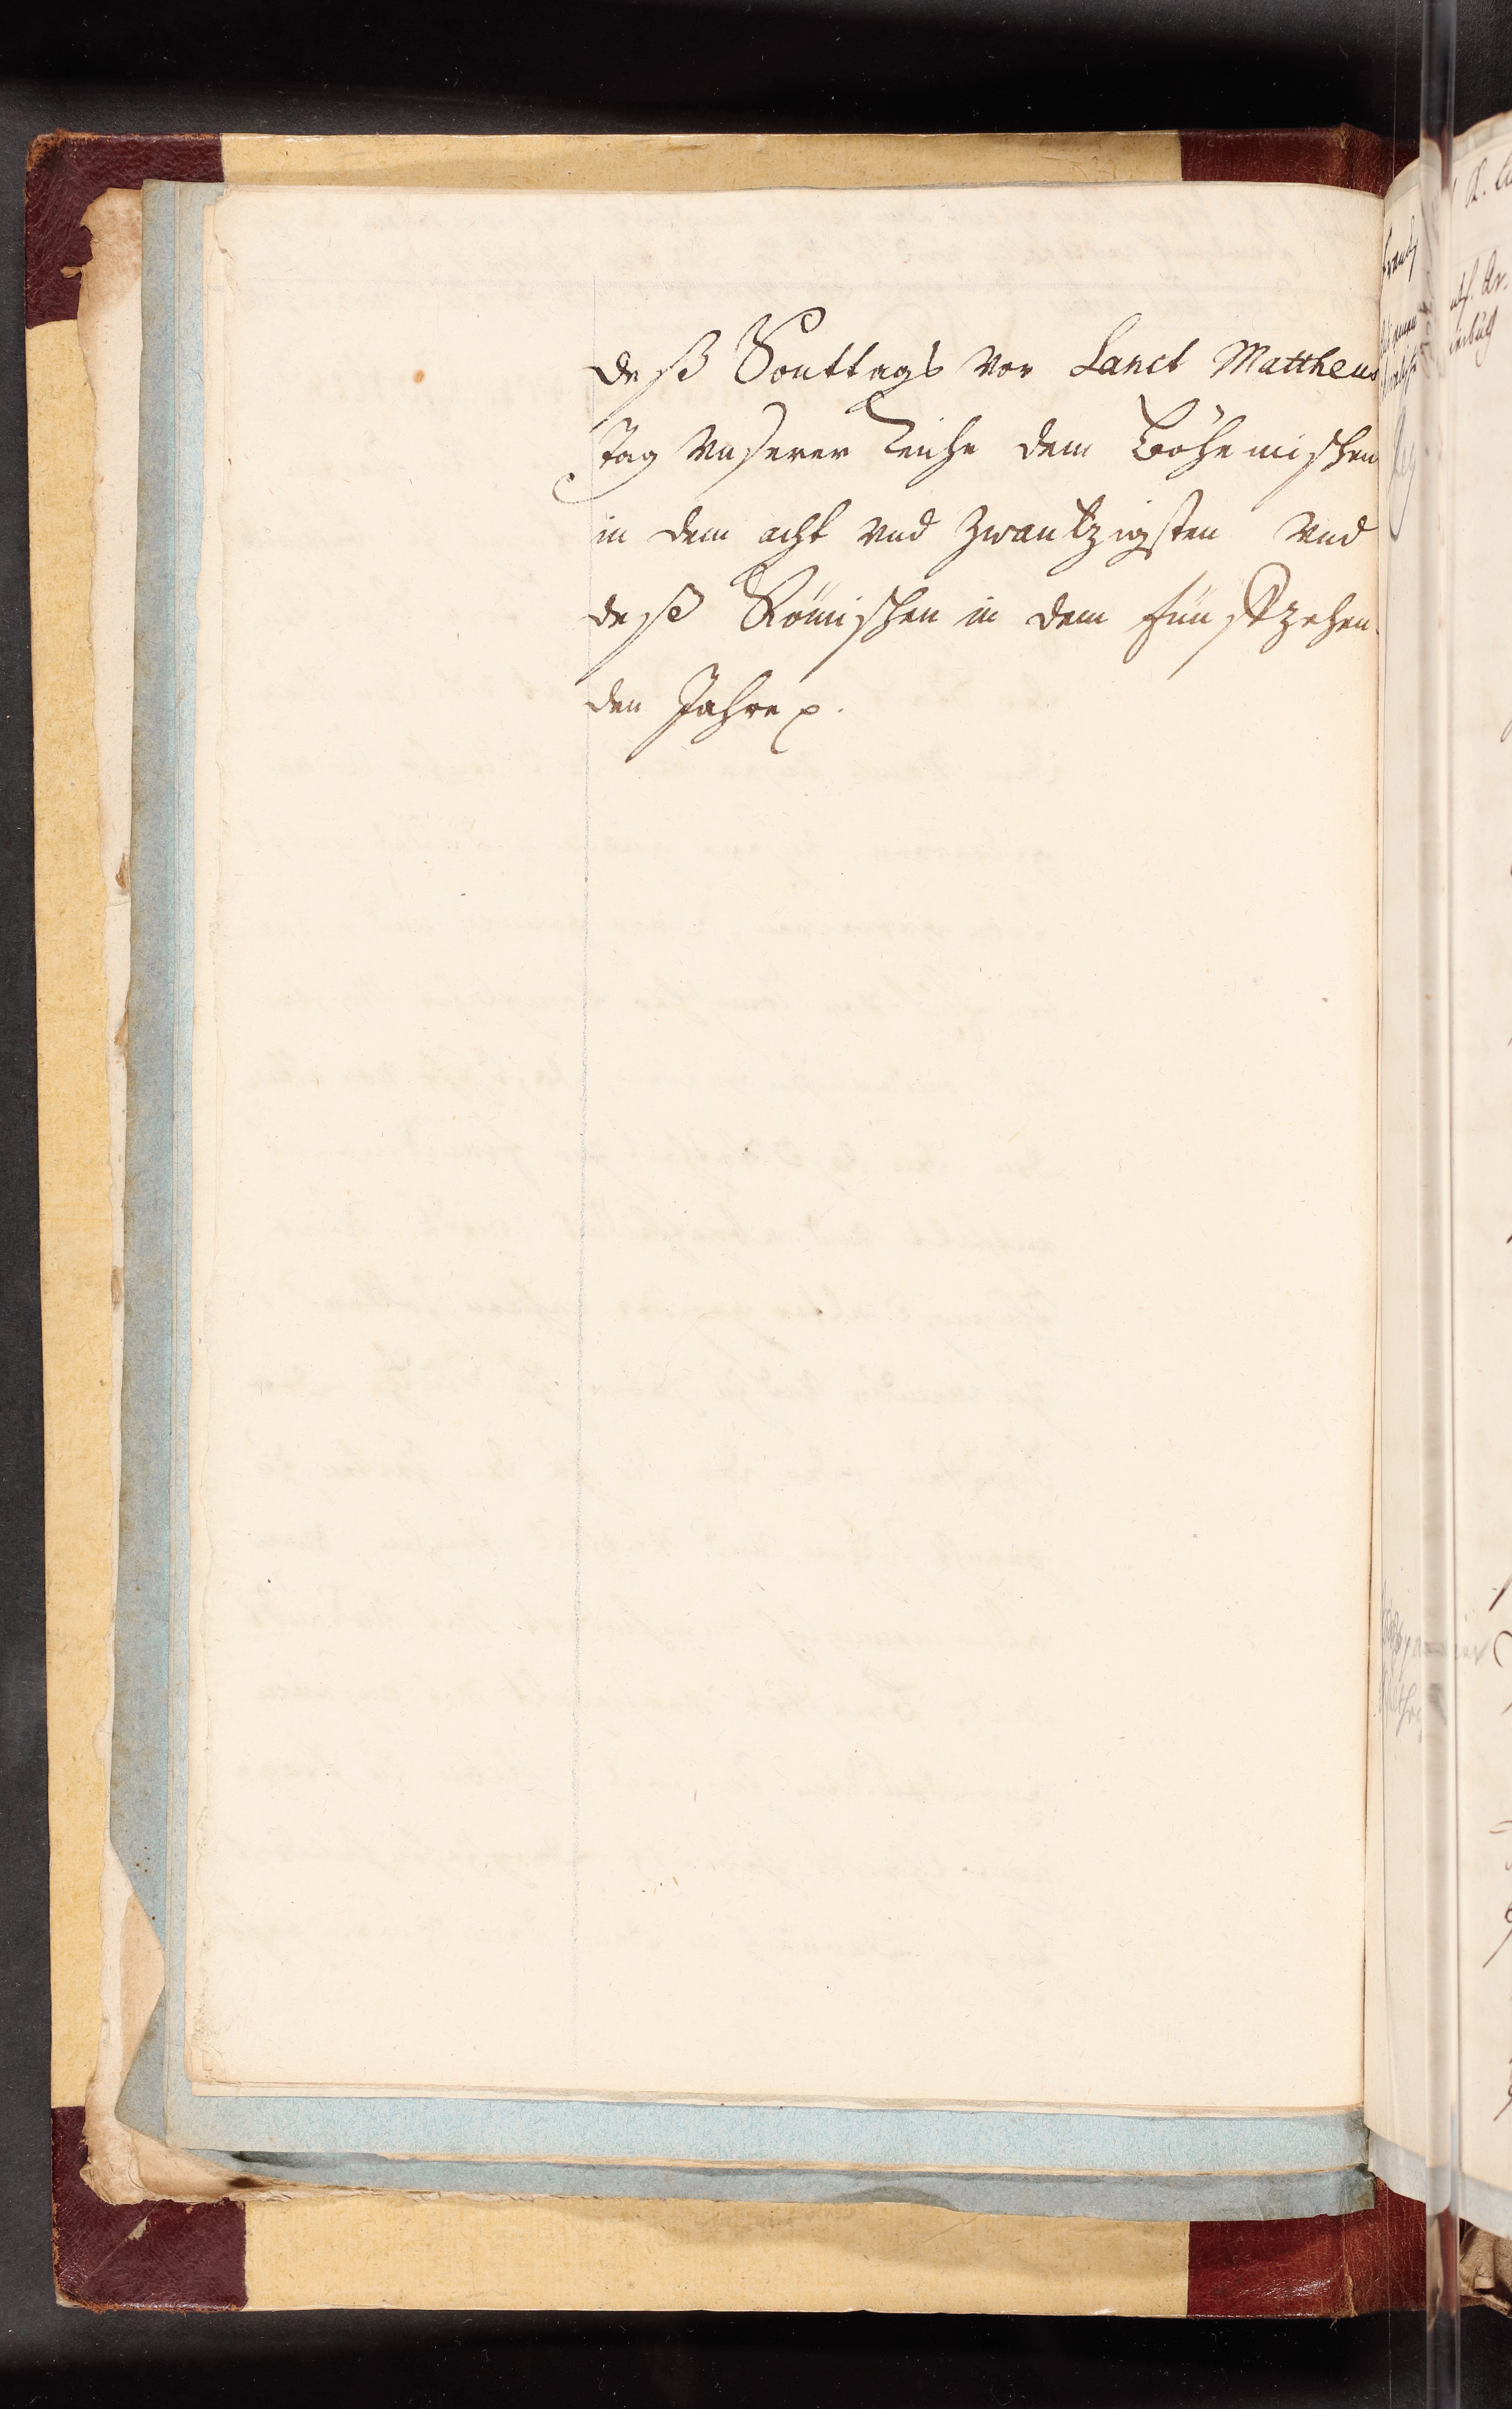 deß Sonttags vor Sanct Mattheus
tag Unserer Reiche dem Böhemischen
in dem acht vnd Zwantzigsten Vnd
deß Römischen in dem fünftzehen
den Jahre p.